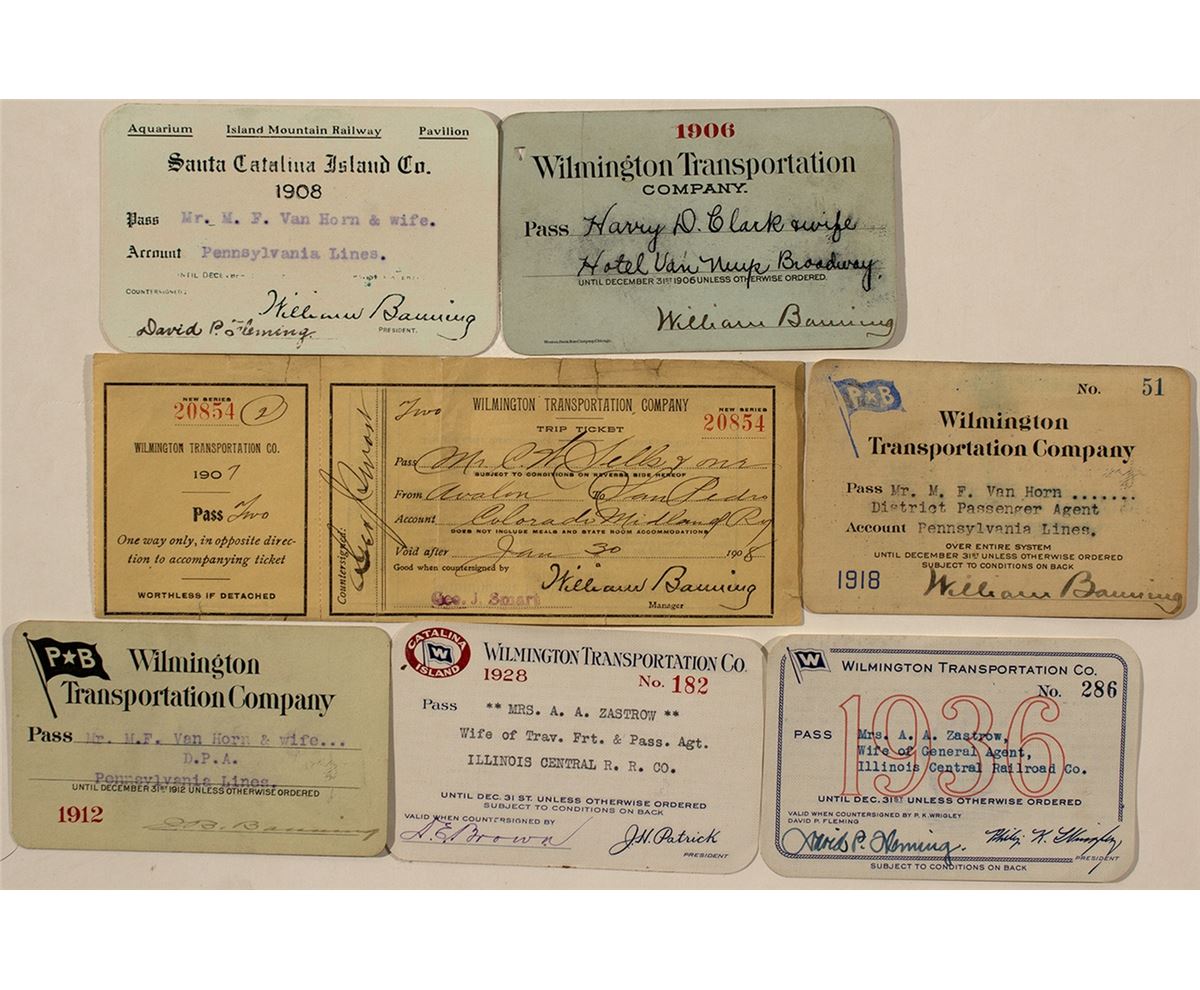 Aquarium Island Mountain Railway Pavilion
Santa Catalina Island Co.
1908
Pass Mr. M. F. Van Horn & wife.
Account Pennsylvania Lines.
COUNTERSIGNED:
William Banning
David P. Fleming.
PRESIDENT.
1906
Wilmington Transportation
COMPANY.
Pass Harry D. Clark & wife
Hotel Van Nuys Broadway.
UNTIL DECEMBER 31ST 1906 UNLESS OTHERWISE ORDERED.
William Banning
NEW SERIES
20854 2
WILMINGTON TRANSPORTATION CO.
1907
Pass Two
One way only, in opposite direc-
tion to accompanying ticket
WORTHLESS IF DETACHED
Countersigned:
Two WILMINGTON TRANSPORTATION COMPANY
NEW SERIES
20854
TRIP TICKET
Pass Mr. C. H. Sells & one
SUBJECT TO CONDITIONS ON REVERSE SIDE HEREOF
From Avalon To San Pedro
Account Colorado Midland Ry
DOES NOT INCLUDE MEALS AND STATE ROOM ACCOMMODATIONS
Void after Jan 30 1908
Good when countersigned by
William Banning
Geo. J. Smart
Manager
P★B
No. 51
Wilmington
Transportation Company
Pass Mr. M. F. Van Horn .......
District Passenger Agent
Account Pennsylvania Lines.
OVER ENTIRE SYSTEM
UNTIL DECEMBER 31ST UNLESS OTHERWISE ORDERED
SUBJECT TO CONDITIONS ON BACK
1918 William Banning
P★B
Wilmington
Transportation Company
Pass Mr. M.F. Van Horn & wife...
D.P.A.
Pennsylvania Lines.
UNTIL DECEMBER 31ST 1912 UNLESS OTHERWISE ORDERED
1912
Banning
CATALINA
W
ISLAND
WILMINGTON TRANSPORTATION CO.
1928
No. 182
Pass ** MRS. A. A. ZASTROW **
Wife of Trav. Frt. & Pass. Agt.
ILLINOIS CENTRAL R. R. CO.
UNTIL DEC. 31 ST. UNLESS OTHERWISE ORDERED
SUBJECT TO CONDITIONS ON BACK
VALID WHEN COUNTERSIGNED BY
A. E. Brown J.H. Patrick
PRESIDENT
W
WILMINGTON TRANSPORTATION CO.
No. 286
1936
PASS Mrs. A. A. Zastrow,
Wife of General Agent,
Illinois Central Railroad Co.
UNTIL DEC. 31ST UNLESS OTHERWISE ORDERED
VALID WHEN COUNTERSIGNED BY P. K. WRIGLEY
DAVID P. FLEMING
David P. Fleming. Philip K. Wrigley
PRESIDENT
SUBJECT TO CONDITIONS ON BACK